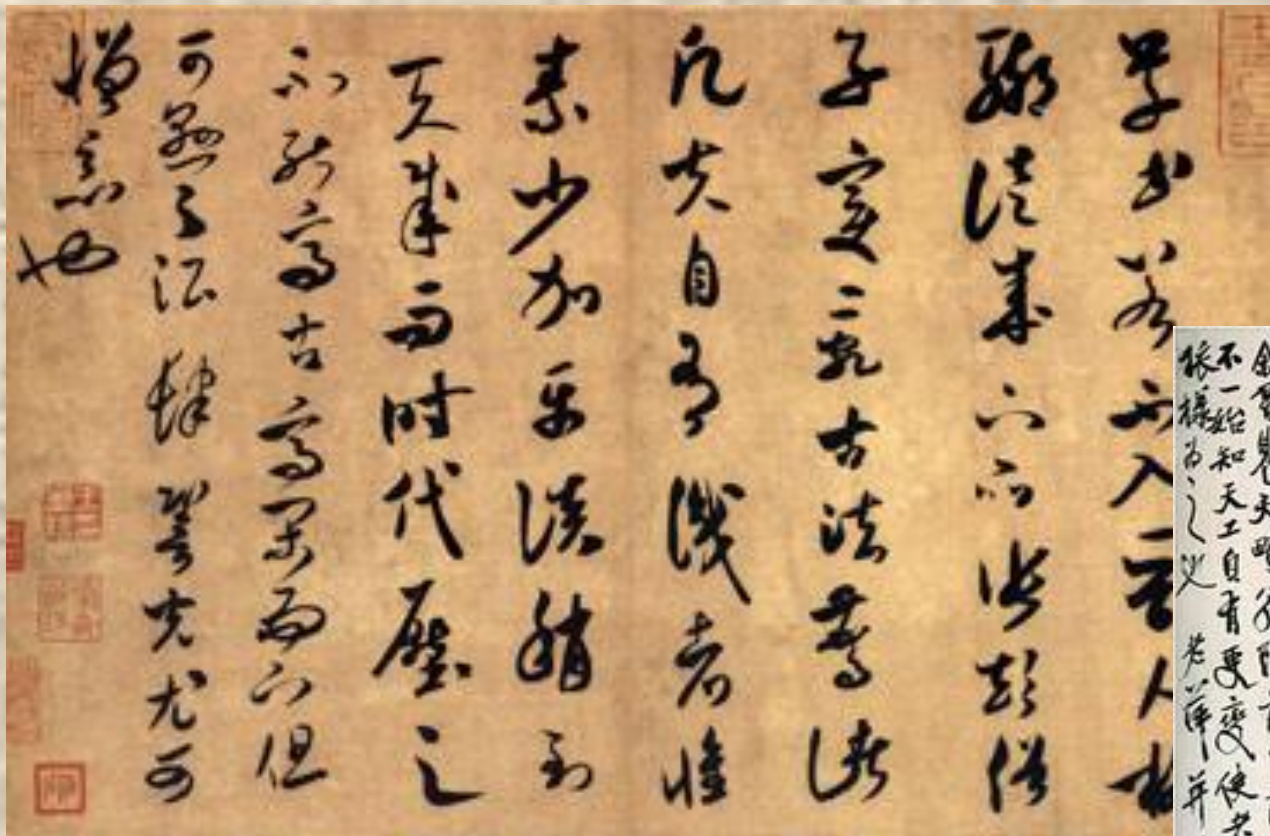 草書若不入晉人格
輒徒成下品張顛俗
子變亂古法驚諸
凡夫自有識者懷
素少加平淡稍到
天成而時代壓之
不能高古高閑而下但
可懸之酒肆䛒光尤可
憎惡也
不一始知天工自有更變使老
老萍并